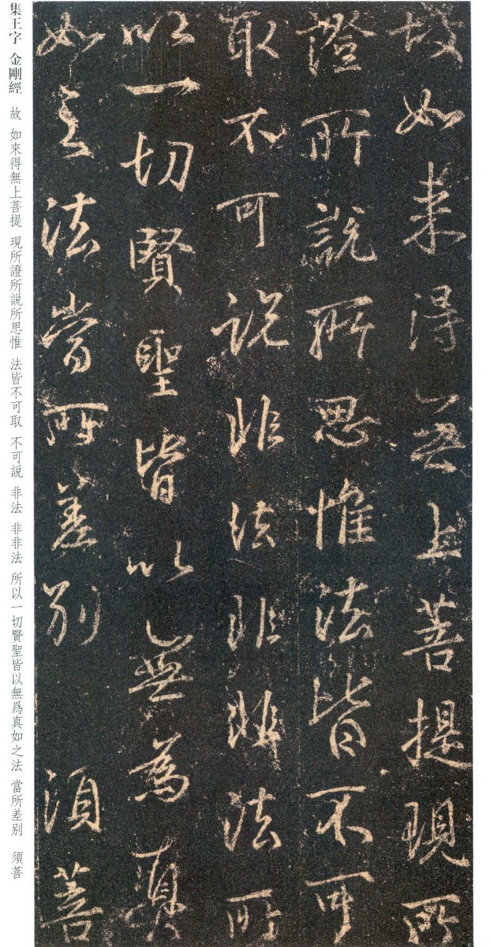 故如来得无上菩提現所
證所說所思惟法皆不可
取不可説非法非非法所
以一切賢聖皆以無為真
如之法當所差別 須菩
集王字 金剛經 故 如來得無上菩提 現所證所説所思惟 法皆不可取 不可説 非法 非非法 所以一切賢聖皆以無爲真如之法 當所差别 須菩